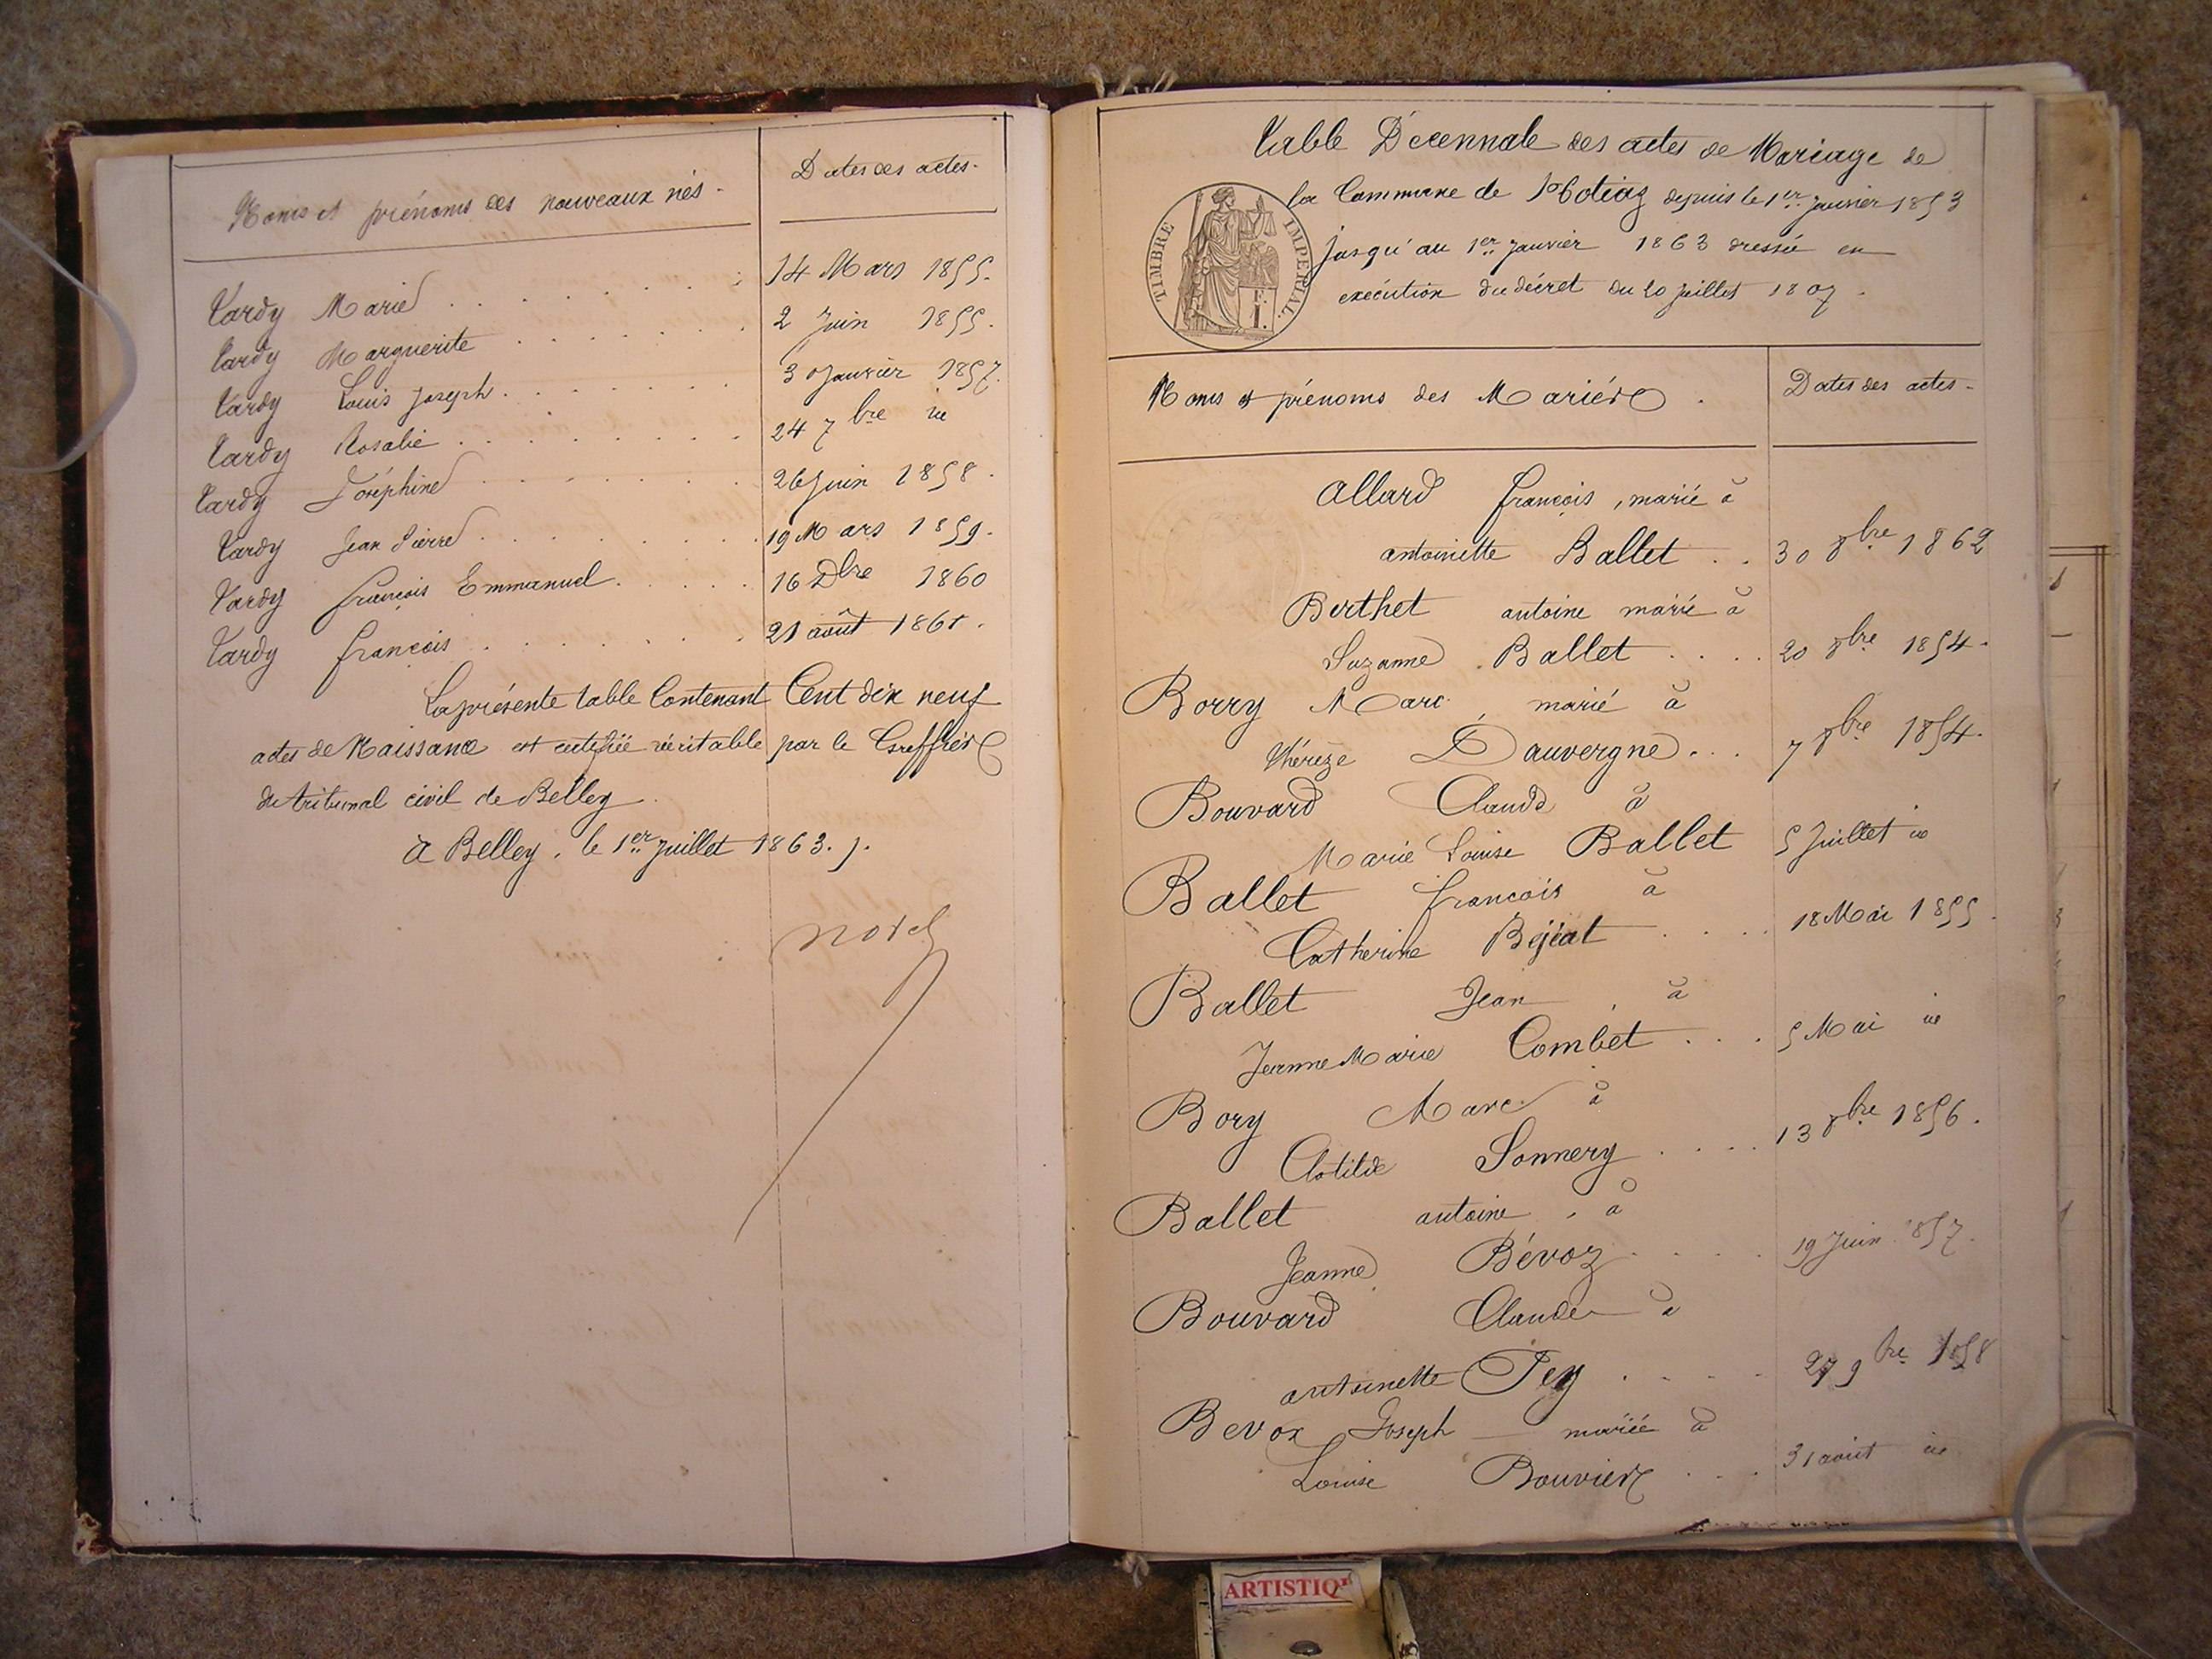 Noms et prénoms des nouveaux nés.
Dates des actes.
Tardy Marie 14 Mars 1855.
Tardy Marguerite 2 Juin 1855.
Tardy Louis Joseph 30 Janvier 1857.
Tardy Rosalie 24 7bre id
Tardy Joséphine 26 Juin 1858.
Tardy Jean Pierre 19 Mars 1859.
Tardy françois Emmanuel 16 Dbre 1860
Tardy françois 21 août 1861.
La présente table Contenant Cent dix neuf
actes de Naissance est certifiée véritable par le Greffier
du tribunal civil de Belley.
à Belley, le 1er Juillet 1863.
Table Décennale des actes de Mariage de
la Commune de depuis le 1er Janvier 1853
jusqu'au 1er Janvier 1863 dressée en
exécution du décret du 20 Juillet 1807.
TIMBRE IMPERIAL.
Noms et prénoms des Mariés.
Dates des actes.
Allard françois, marié à
antoinette Ballet 30 8bre 1862
Berthet antoine marié à
Suzanne Ballet 20 8bre 1854.
Borry Marc, marié à
thérèze Dauvergne 7 8bre 1854.
Bouvard Claude à
Marie Louise Ballet 5 Juillet id
Ballet françois à
Catherine Béjeat 18 Mai 1855.
Ballet Jean, à
Jeanne Marie Combet 5 Mai id
Bory Marc à
Clotilde Sonnery 13 8bre 1856.
Ballet antoine, à
Jeanne Bévoz 19 Juin 1857.
Bouvard Claude à
antoinette Pey 9bre 1858
Bevoz Joseph mariée à
Louise Bouvier 31 août id
ARTISTIQ